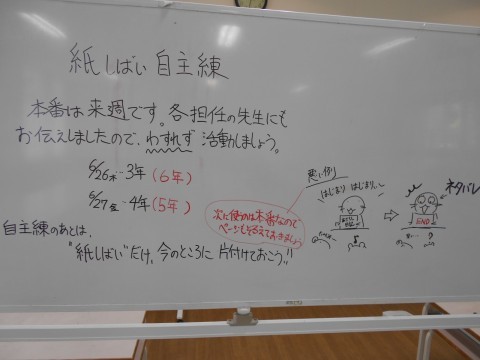 紙しばい 自主練
本番は来週です。各担任の先生にも
お伝えしましたので、わすれず 活動しましょう。
6/26木…3年(6年)
6/27金…4年(5年)
次に使うのは本番なので
ページもそろえておきましょう
自主練のあとは、
"紙しばい"だけ、今のところに 片付けておこう!!
悪い例
はじまり はじまり〜
END
ネタバレ